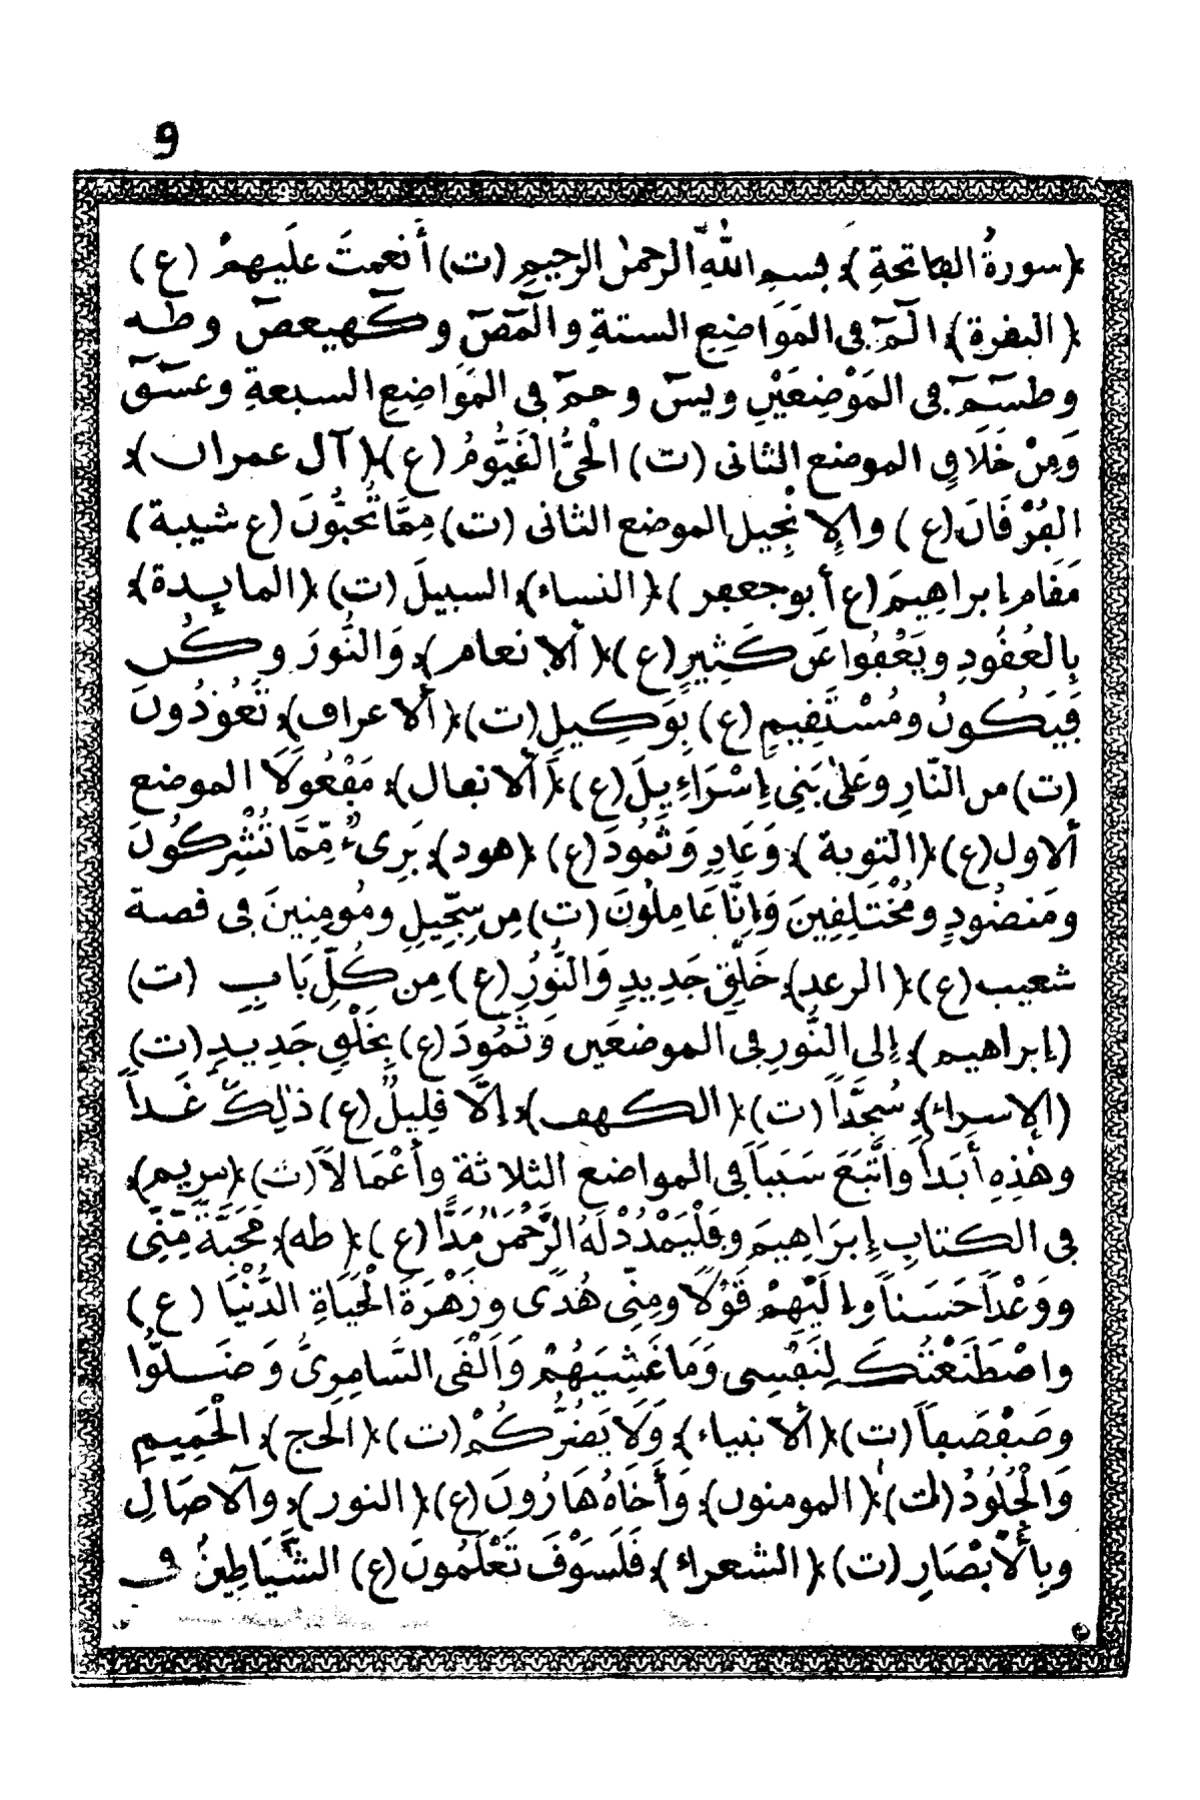 9
﴿سورةُ الفاتحةِ﴾ بسمِ اللّٰهِ الرحمٰنِ الرحيمِ (ت) أَنعمتَ عَلَيهِمْ (ع)
﴿البقرةِ﴾ الٓمٓ في المَوَاضِعِ الستةِ والٓمٓصٓ وكٓهيعصٓ وطٰه
وطسٓمٓ في المَوْضِعَيْنِ ويسٓ وحمٓ في المَوَاضِعِ السبعةِ وعٓسٓقٓ
وَمِنْ خَلَاقٍ الموضع الثاني (ت) الْحَيُّ الْقَيُّومُ (ع) ﴿آل عمران﴾
الفُرْقَانَ (ع) والإِنْجِيل الموضع الثاني (ت) مِمَّا تُحِبُّونَ (ع شيبة)
مَقَامِ إبراهِيمَ (ع أبو جعفر) ﴿النساء﴾ السبيلَ (ت) ﴿المايدة﴾
بِالعُقُودِ ويَعْفُوا عَن كَثِيرٍ (ع) ﴿ألانعام﴾ وَالنُّورَ وكُن
فَيَكُونُ ومُسْتَقِيمٍ (ع) بِوَكِيلٍ (ت) ﴿ألاعراف﴾ تَعُودُونَ
(ت) من النّارِ وعَلىٰ بَنِى إسْرَاءِيلَ (ع) ﴿ألانفال﴾ مَفْعُولاً الموضع
ألاول (ع) ﴿التوبة﴾ وَعَادٍ وَثَمُودَ (ع) ﴿هود﴾ بَرِىءٌ مِّمَّا تُشْرِكُونَ
ومَنضُودٍ ومُخْتَلِفِينَ وَإنَّا عَامِلُونَ (ت) مِن سِجِّيلٍ ومُومِنِينَ في قصة
شعيب (ع) ﴿الرعد﴾ خَلْقٍ جَدِيدٍ وَالنُّورُ (ع) مِن كُلِّ بَابٍ (ت)
﴿إبراهيم﴾ إلى النُّورِ في الموضعَين وَثَمُودَ (ع) بِخَلْقٍ جَدِيدٍ (ت)
﴿الإسراء﴾ سُجَّداً (ت) ﴿الكهف﴾ إلَّا قَلِيلٌ (ع) ذٰلِكَ غَداً
وهٰذِهِ أَبَداً وَاتَّبَعَ سَبَباً في المواضع الثلاثة وأَعْمَالاً (ت) ﴿مريم﴾
في الكتابِ إبرَاهِيمَ وفَلْيَمْدُدْ لَهُ الرَّحْمَنُ مَدًّا (ع) ﴿طه﴾ مَحَبَّةً مِّنِّى
ووَعْداً حَسَناً وإلَيْهِمْ قَوْلاً ومِنِّى هُدًى وزَهْرَةَ الْحَيَاةِ الدُّنْيَا (ع)
واصْطَنَعْتُكَ لِنَفْسِى وَمَا غَشِيَهُمْ وَأَلْقَى السَّامِرِىُّ وَضَلُّوا
وصَفْصَفاً (ت) ﴿ألانبياء﴾ وَلَا يَضُرُّكُمْ (ت) ﴿الحج﴾ الْحَمِيمِ
وَالْجُلُودُ (ت) ﴿المومنون﴾ وَأَخَاهُ هَارُونَ (ع) ﴿النور﴾ وَالآصَالِ
وبِالْأَبْصَارِ (ت) ﴿الشعراء﴾ فَلَسَوْفَ تَعْلَمُونَ (ع) الشَّيَاطِينُ في